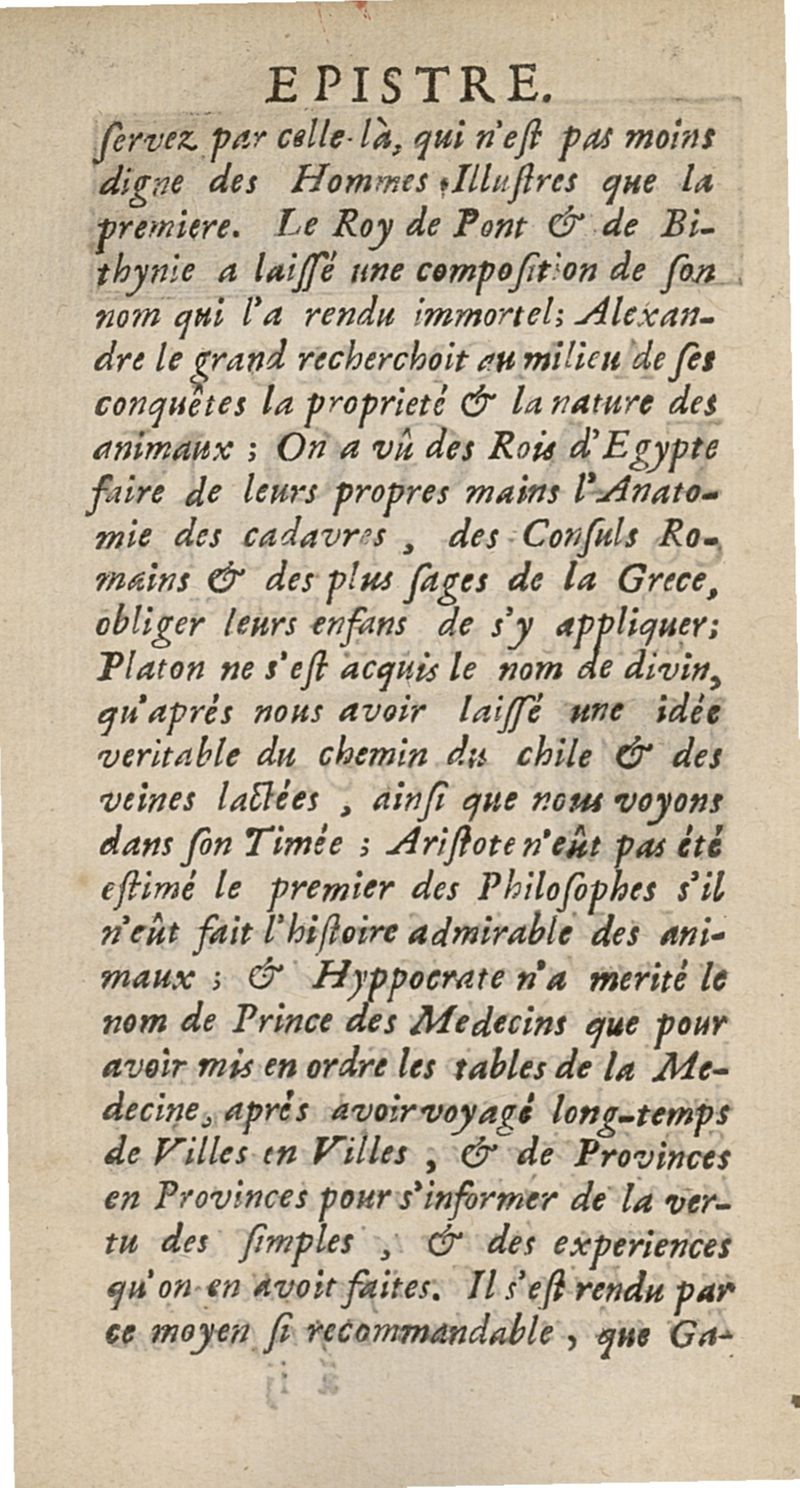 EPISTRE.
ſervez par celle-là, qui n'eſt pas moins
digne des Hommes Illuſtres que la
premiere. Le Roy de Pont & de Bi-
thynie a laiſſé une compoſition de ſon
nom qui l'a rendu immortel; Alexan-
dre le grand recherchoit au milieu de ſes
conquêtes la proprieté & la nature des
animaux ; On a vû des Rois d'Egypte
faire de leurs propres mains l'Anato-
mie des cadavres , des Conſuls Ro-
mains & des plus ſages de la Grece,
obliger leurs enfans de s'y appliquer;
Platon ne s'eſt acquis le nom de divin,
qu'aprés nous avoir laiſſé une idée
veritable du chemin du chile & des
veines lactées , ainſi que nous voyons
dans ſon Timée ; Ariſtote n'eût pas été
eſtimé le premier des Philoſophes s'il
n'eût fait l'hiſtoire admirable des ani-
maux ; & Hyppocrate n'a merité le
nom de Prince des Medecins que pour
avoir mis en ordre les tables de la Me-
decine, aprés avoir voyagé long-temps
de Villes en Villes , & de Provinces
en Provinces pour s'informer de la ver-
tu des ſimples , & des experiences
qu'on en avoit faites. Il s'eſt rendu par
ce moyen ſi recommandable , que Ga-